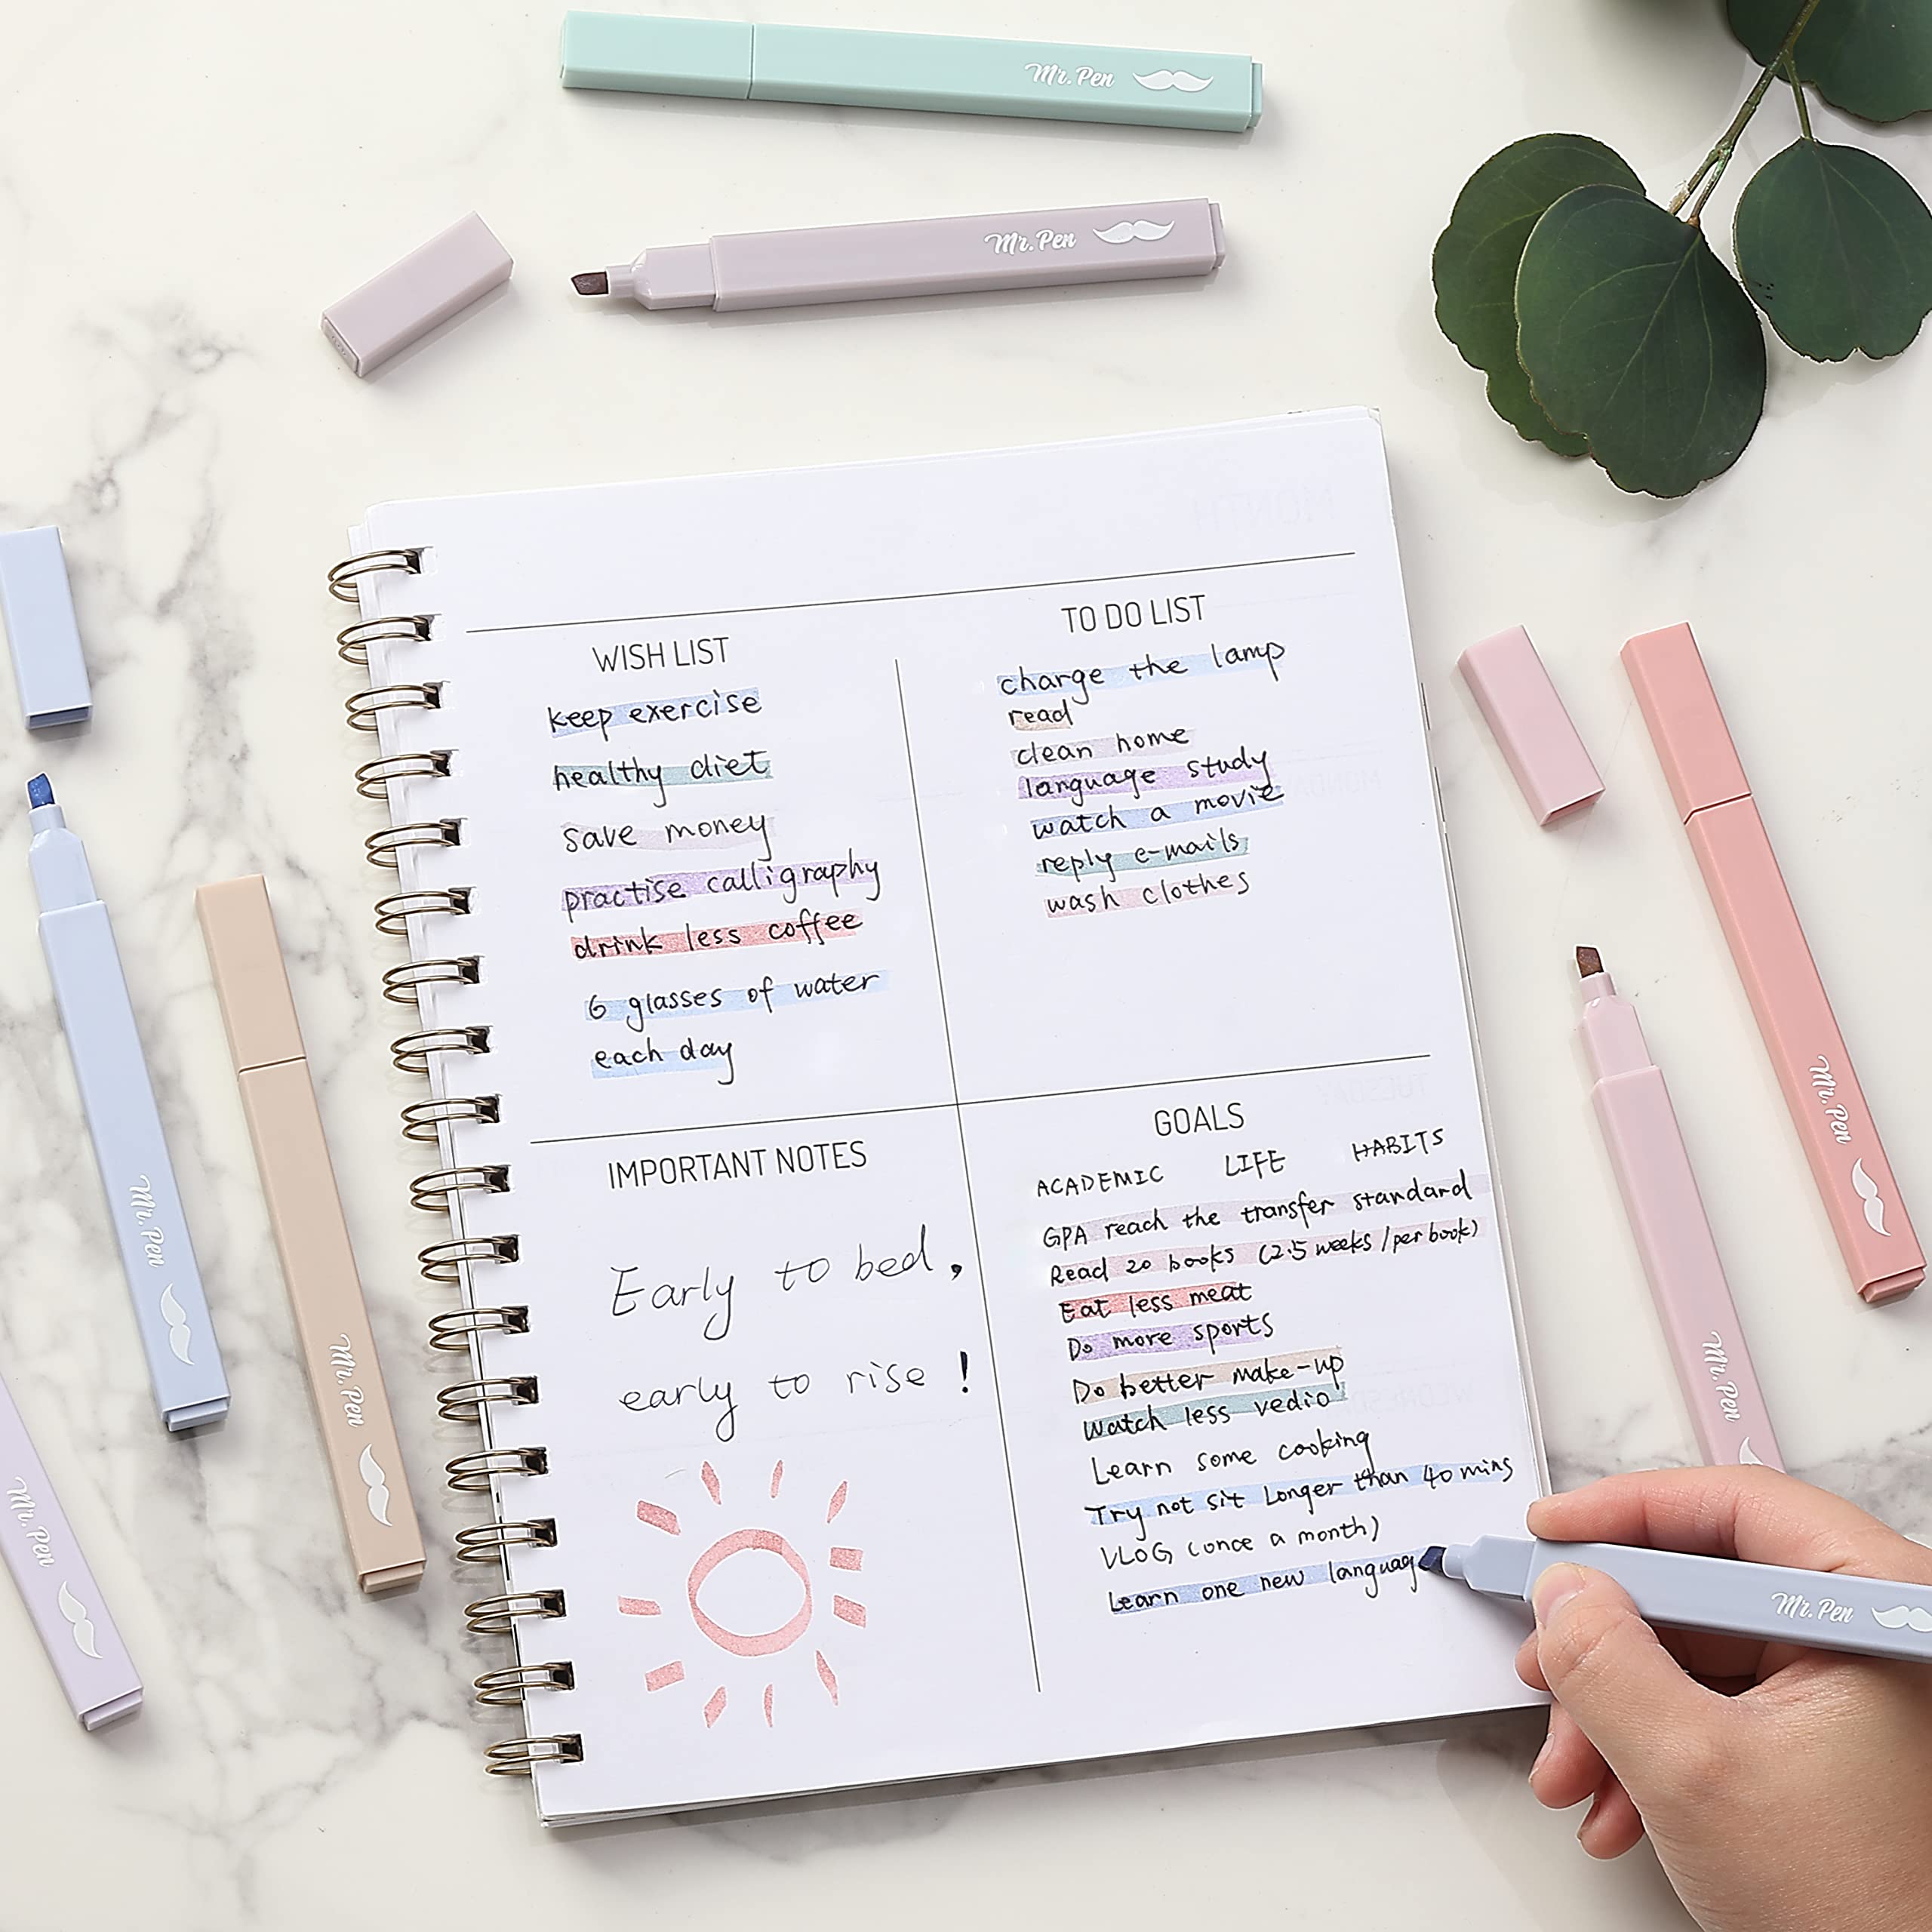 Mr. Pen
Mr. Pen
WISH LIST
keep exercise
healthy diet
save money
practise calligraphy
drink less coffee
6 glasses of water
each day
TO DO LIST
charge the lamp
read
clean home
language study
watch a movie
reply e-mails
wash clothes
IMPORTANT NOTES
Early to bed,
early to rise!
GOALS
ACADEMIC LIFE HABITS
GPA reach the transfer standard
Read 20 books (2.5 weeks /per book)
Eat less meat
Do more sports
Do better make-up
Watch less vedio
Learn some cooking
Try not sit Longer than 40 mins
VLOG (once a month)
Learn one new languag
Mr. Pen
Mr. Pen
Mr. Pen
Mr. Pen
Mr. Pen
Mr. Pen
MONTH
TUESDAY